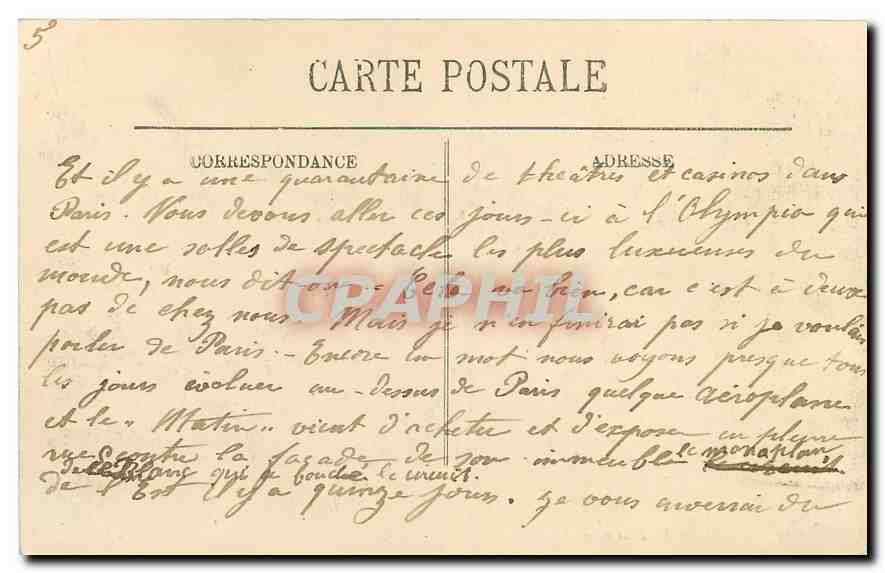 5
CARTE POSTALE
CORRESPONDANCE ADRESSE
Et il y a une quarantaine de théâtres et casinos dans
Paris. Nous devons aller ces jours-ci à l'Olympia qui
est une salles de spectacle les plus luxueuses du
monde, nous dit-on. - Cela va bien, car c'est à deux
pas de chez nous. Mais je n'en finirai pas si je voulais
parler de Paris. - Encore un mot nous voyons presque tous
les jours évoluer au-dessus de Paris quelque aéroplane
et le "Matin" vient d'acheter et d'exposer en pleine
rue contre la façade de son immeuble le monoplan
de Leblanc qui a bouclé le circuit.
de l'Est il y a quinze jours. Je vous enverrai du
CPAPHIL